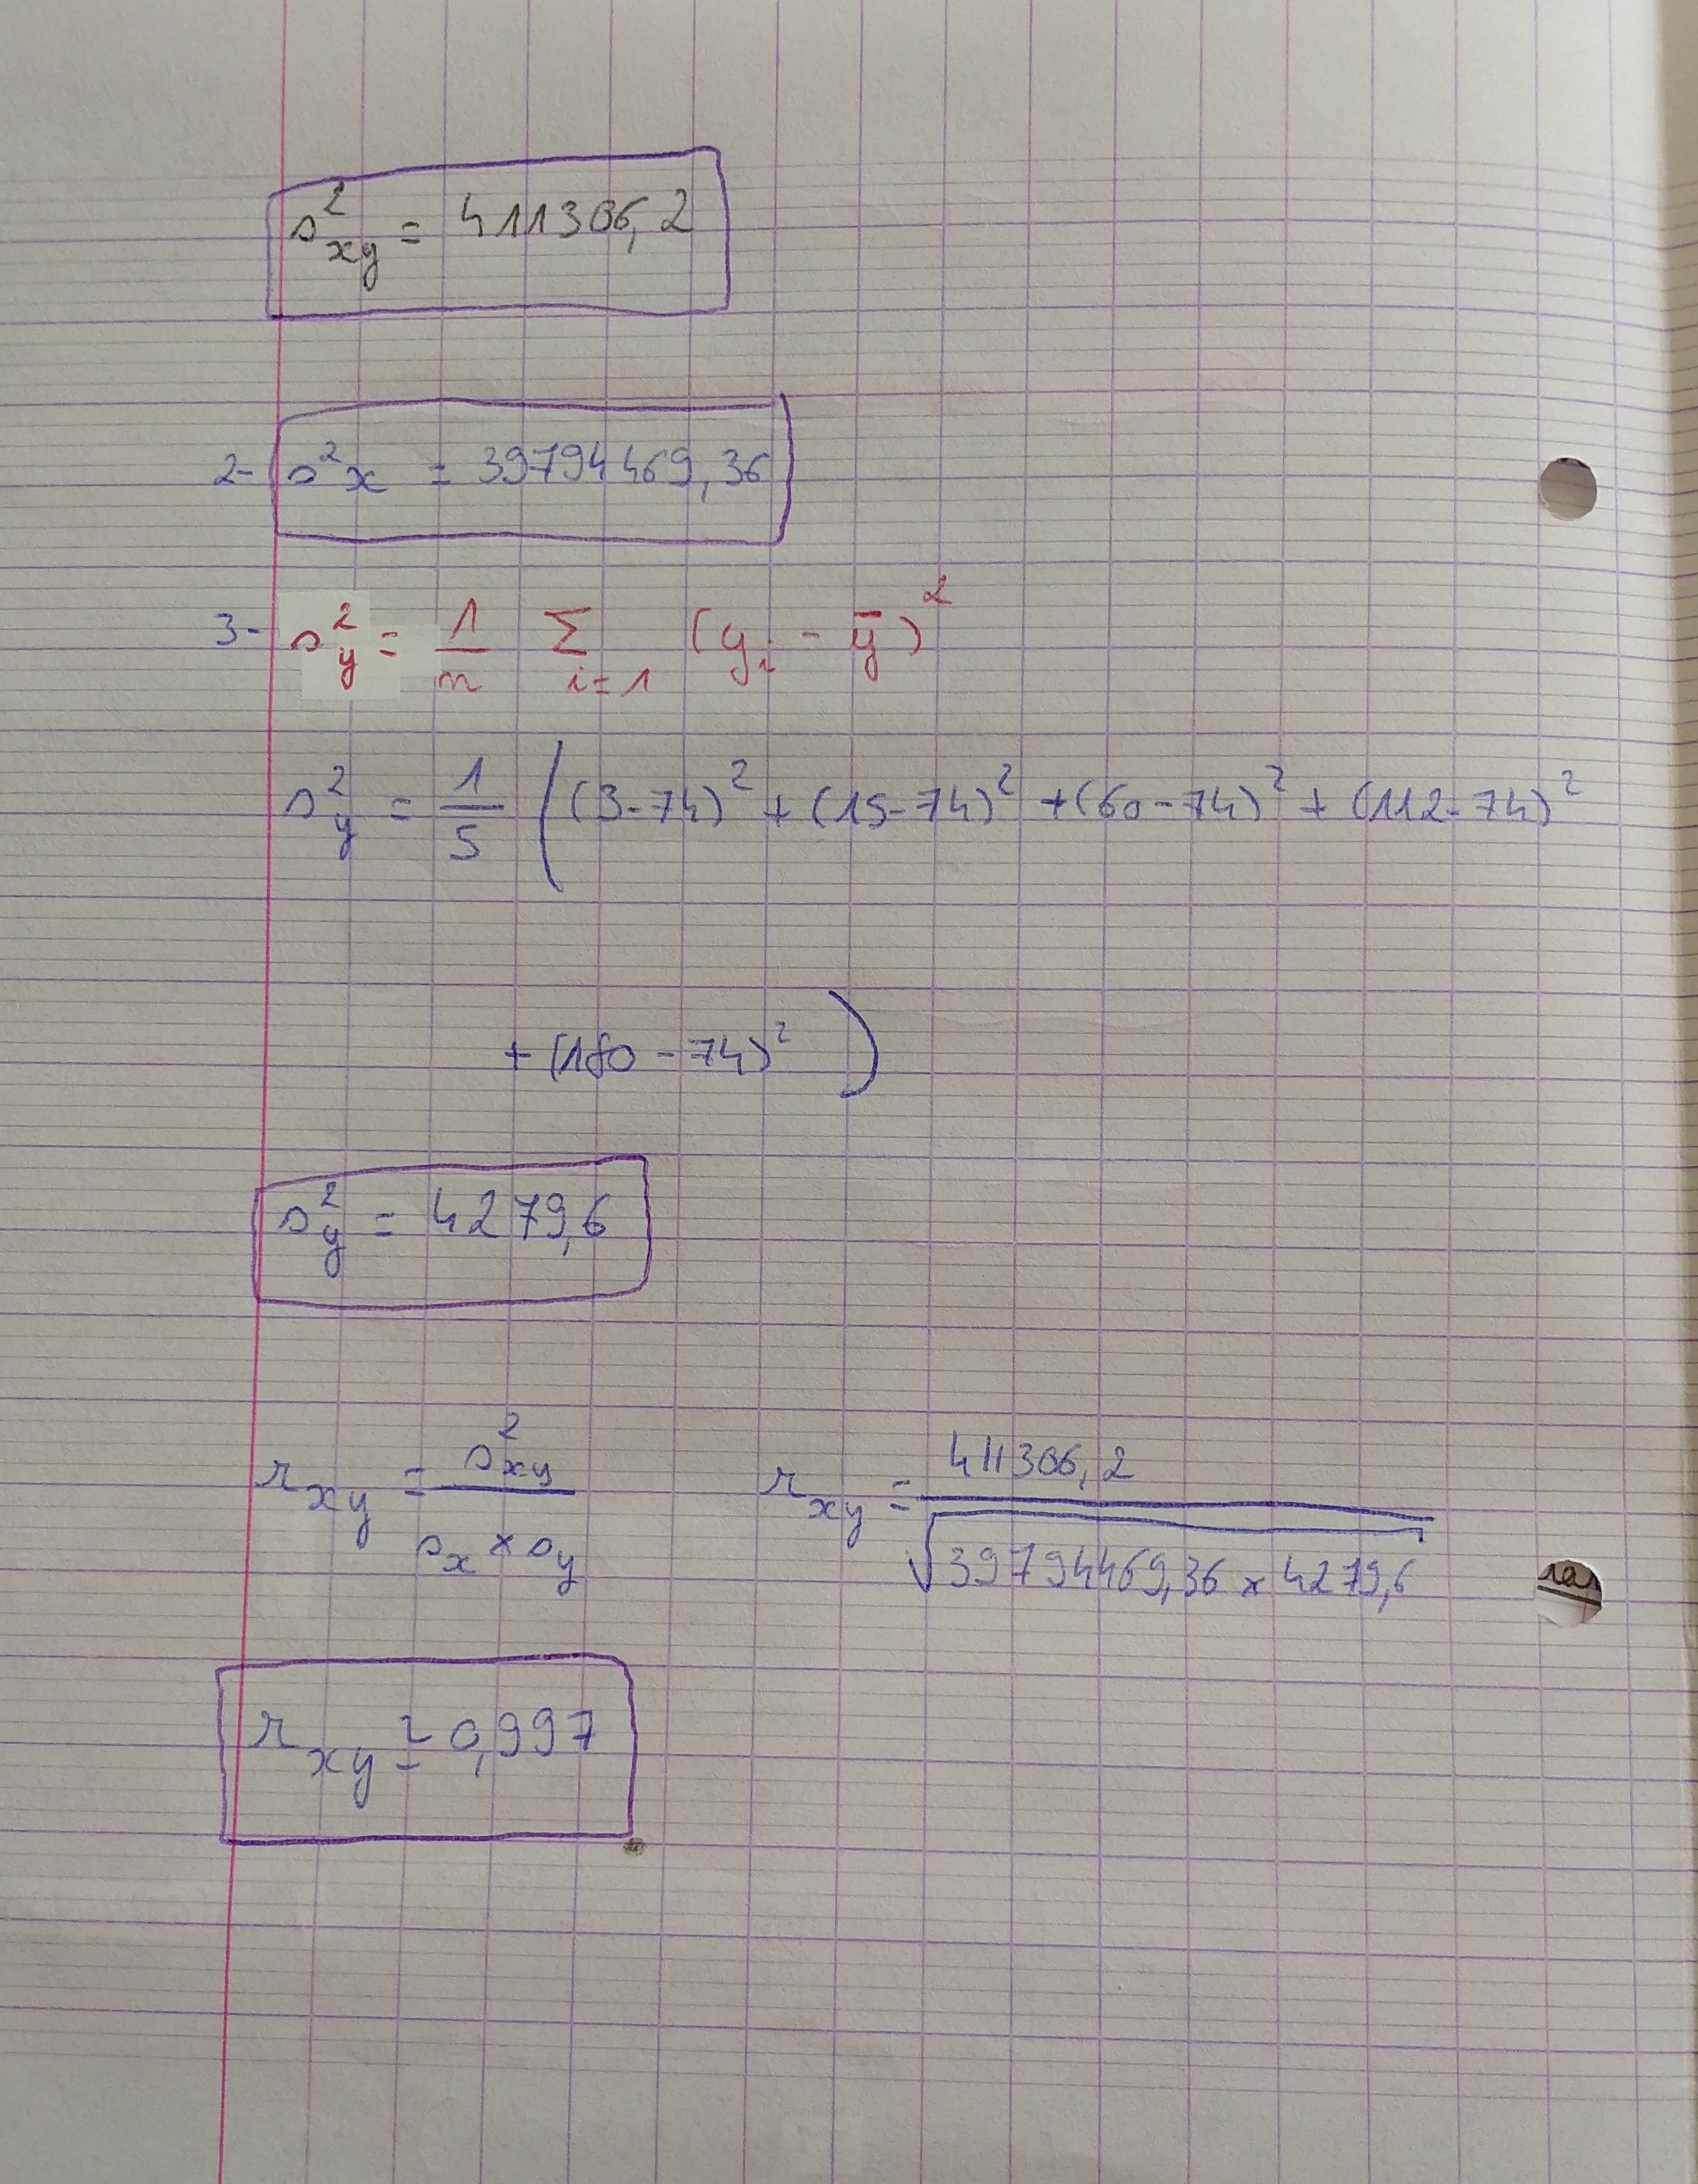 s²xy = 411306,2
2- s²x = 39794469,36
3- s²y = 1/n Σ i=1 (yi - ȳ)²
s²y = 1/5 ((3-74)² + (15-74)² + (60-74)² + (112-74)²
+ (180-74)²)
s²y = 4279,6
rxy = s²xy / sx × sy    rxy = 411306,2 / √39794469,36 × 4279,6
rxy ≃ 0,997